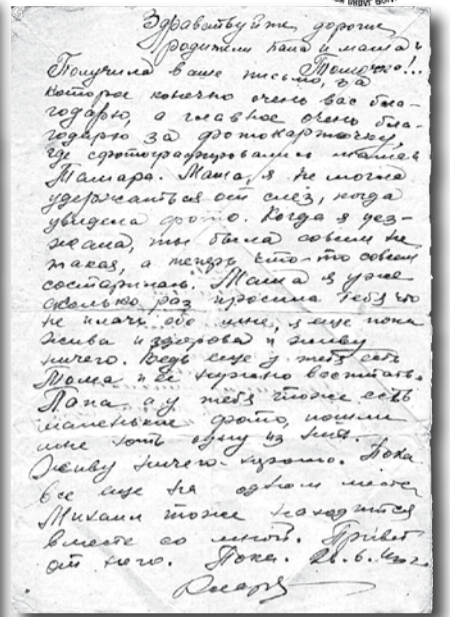 Здравствуйте дорогие
родители папа и мама и
Томочка!..
Получила ваше письмо, за
которое конечно очень вас бла-
годарю, а главное очень бла-
годарю за фотокарточку,
где сфотографировались мама и
Тамара. Мама, я не могла
удержаться от слёз, когда
увидела фото. Когда я уез-
жала, ты была совсем не
такая, а теперь что-то совсем
состарилась. Мама я уже
сколько раз просила тебя что
не плачь обо мне, я еще пока
жива и здорова и живу
ничего. Ведь еще у тебя есть
Тома и её нужно воспитать.
Папа, а у тебя тоже есть
маленькие фото, пошли
мне хоть одну из них.
Живу ничего-хорошо. Пока
все еще на одном месте
Михаил тоже находится
вместе со мной. Привет
от него. Пока. 28.6.
Клара